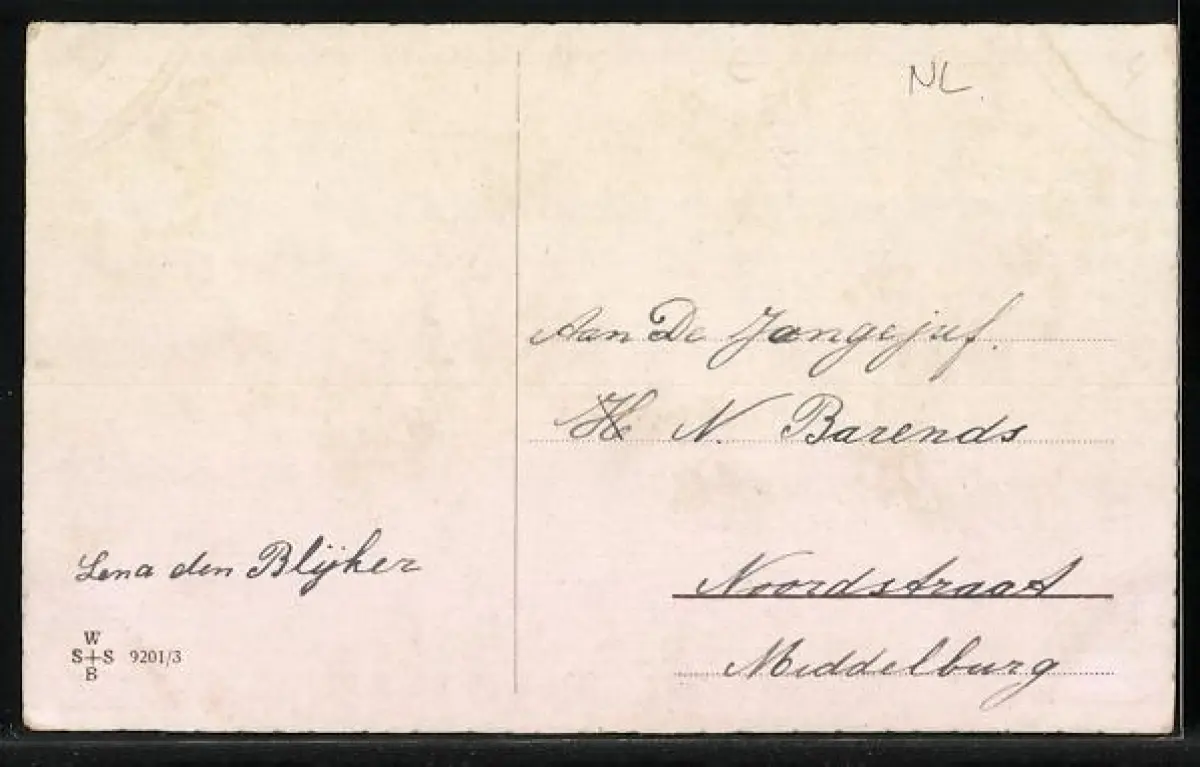 NL.
Aan De Jongejuf.
N. Barends
Lena den Blijker
Noordstraat
Middelburg
W
S+S 9201/3
B